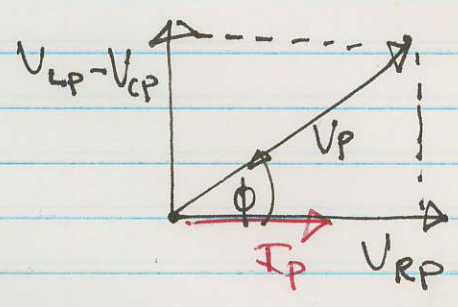 V_Lp - V_Cp
V_P
ϕ
I_P
V_RP